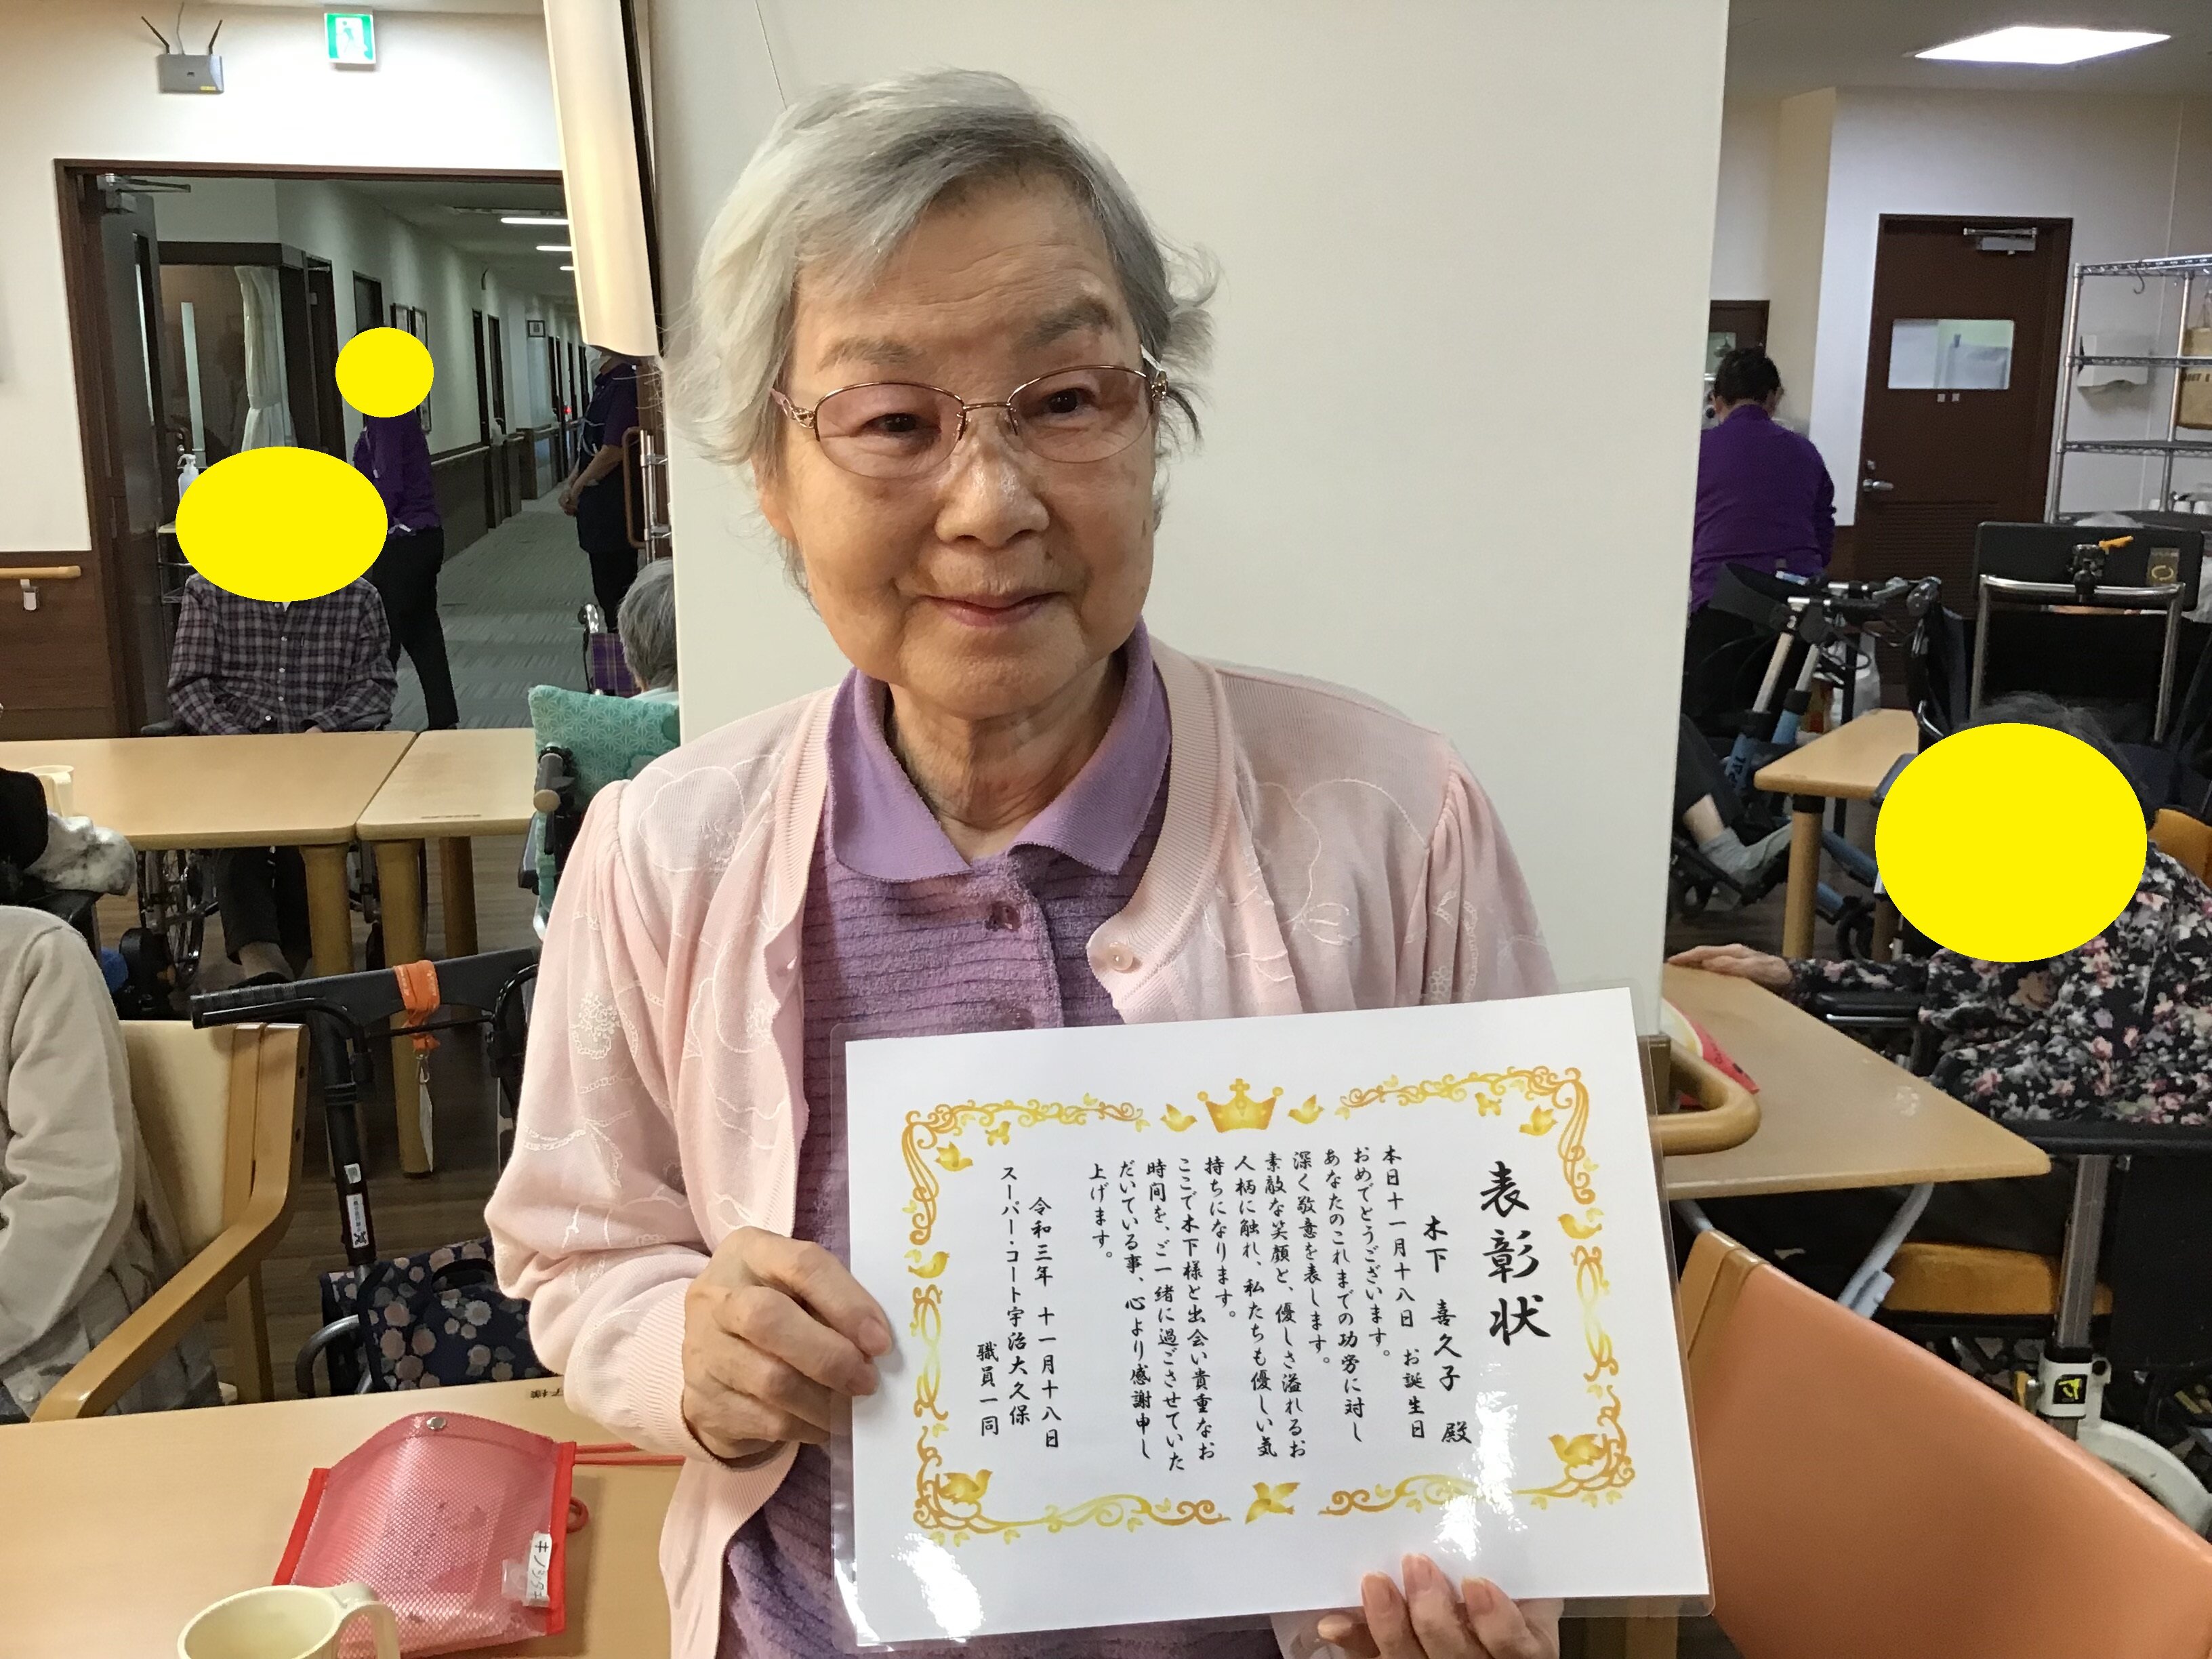 表彰状
木下 喜久子 殿
本日十一月十八日 お誕生日
おめでとうございます。
あなたのこれまでの功労に対し
深く敬意を表します。
素敵な笑顔と、優しさ溢れるお
人柄に触れ、私たちも優しい気
持ちになります。
ここで木下様と出会い貴重なお
時間を、ご一緒に過ごさせていた
だいている事、心より感謝申し
上げます。
令和三年 十一月十八日
スーパー・コート宇治大久保
職員一同